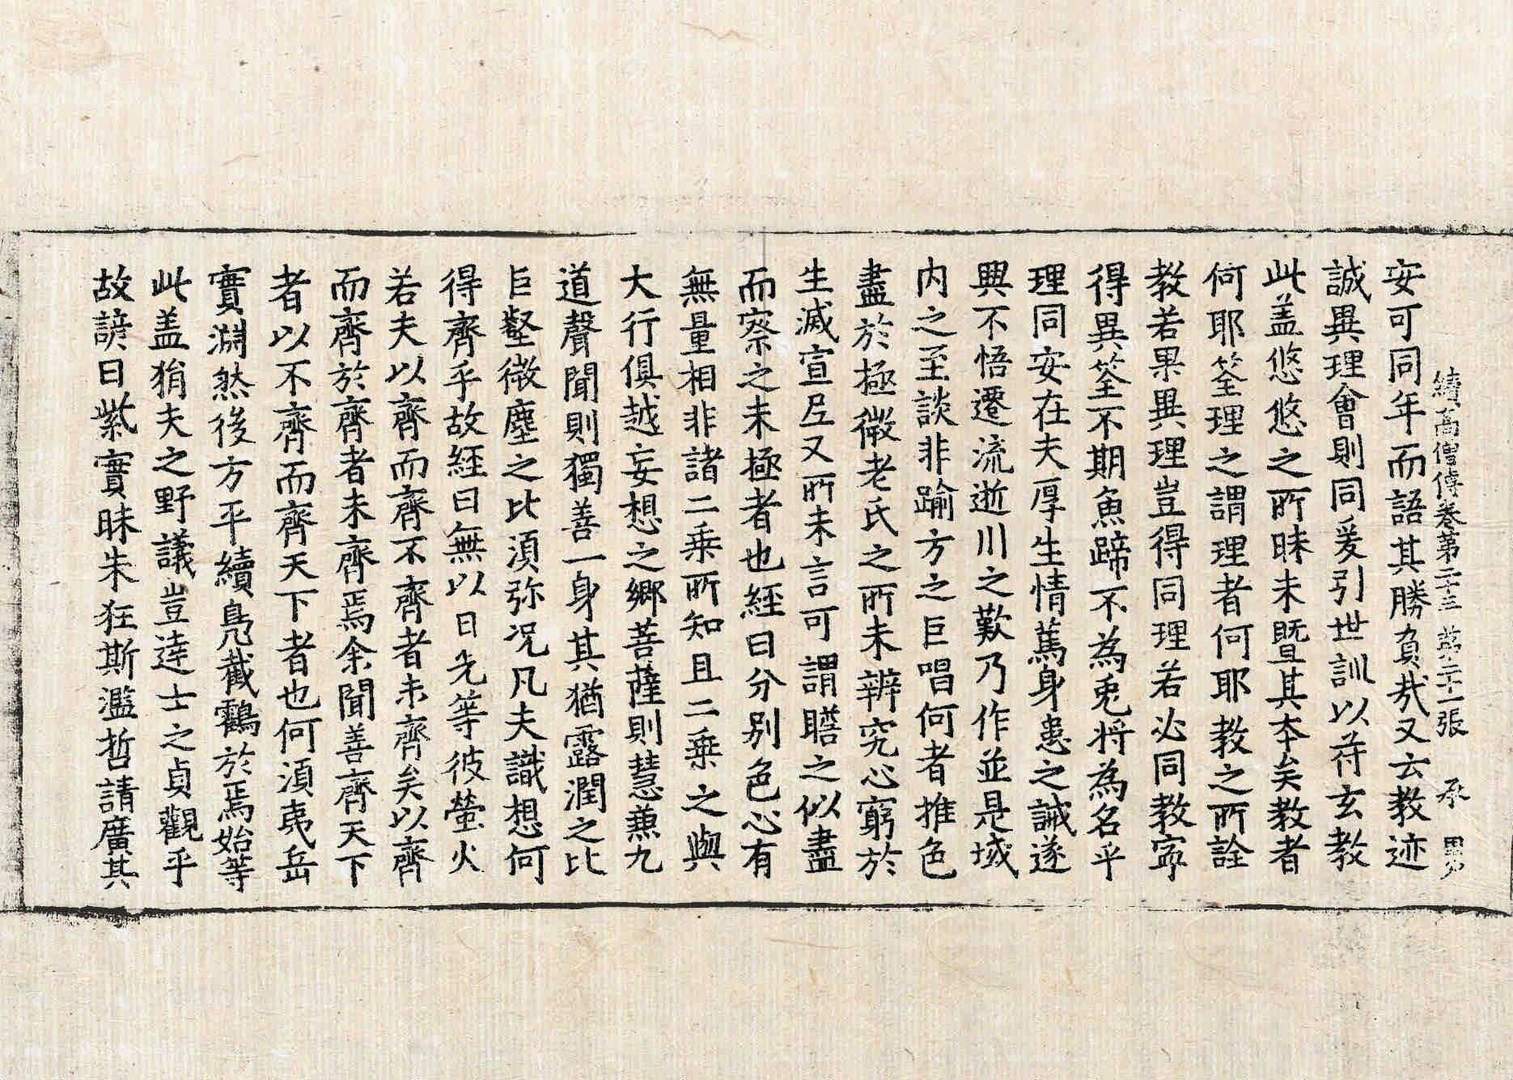 續高僧傳卷第二十三 第二十一張 承
安可同年而語其勝負㢤又云教迹
誠異理會則同爰引世訓以符玄教
此盖悠悠之所昧未暨其夲矣教者
何耶筌理之謂理者何耶教之所詮
教若果異理豈得同理若必同教寧
得異筌不期魚蹄不為兎將為名乎
理同安在夫厚生情篤身患之誡遂
興不悟遷流逝川之歎乃作並是域
内之至談非踰方之巨唱何者推色
盡於極微老氏之所未辨究心窮於
生滅宣尼又所未言可謂瞻之似盡
而察之未極者也經曰分别色心有
無量相非諸二乘所知且二乘之與
大行俱越妄想之鄉菩薩則慧兼九
道聲聞則獨善一身其猶露潤之比
巨壑微塵之比湏弥况凡夫識想何
得齊乎故經曰無以日光等彼螢火
若夫以齊而齊不齊者未齊矣以齊
而齊於齊者未齊焉余聞善齊天下
者以不齊而齊天下者也何湏夷岳
實淵然後方平續鳧截鶴於焉始等
此盖狷夫之野議豈達士之貞觀乎
故諺曰紫實昧朱狂斯濫哲請廣其